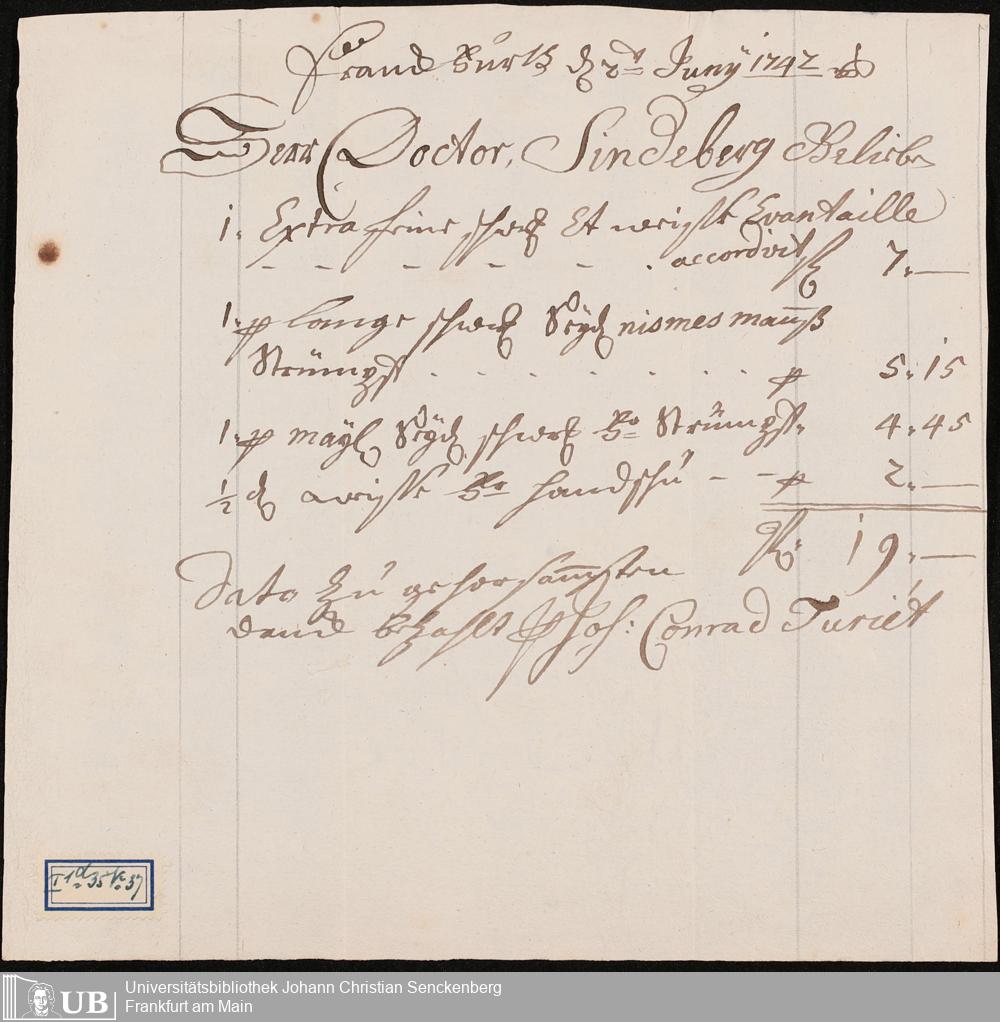 Franckfurth d 2t Juny 1742
Herr Doctor, Sindeberg Beliebe
1. Extra feine schwz Et weisse Evantaille
accordirt f 7.—
1. p lange schwz Seyd nismes manß
Strümpff . . . . . . . p 5.15
1. p mayl Seyd schwz do Strümpff. 4.45
½ d weisse do handschu - - p 2.—
R: 19.—
Dato zu gehorsamsten
danck bezahlt Joh: Conrad Turiet
I 1d 35 K 37
UB
Universitätsbibliothek Johann Christian Senckenberg
Frankfurt am Main